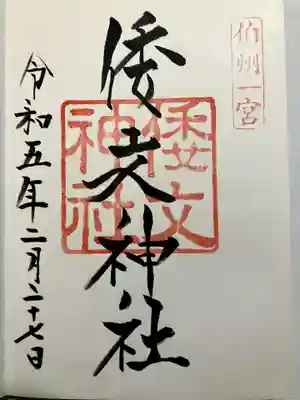 伯州一宮
倭文神社
倭文
神社
令和五年二月二十七日